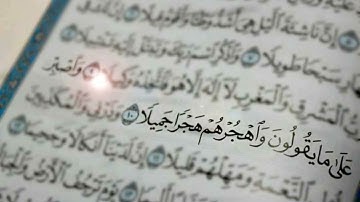 إِنَّ نَاشِئَةَ ٱلَّيْلِ هِىَ أَشَدُّ وَطْـًٔا
سَبْحًا طَوِيلًا ۝٧ وَٱذْكُرِ ٱسْمَ رَبِّكَ وَتَبَتَّلْ إِلَيْهِ تَبْتِيلًا
ٱلْمَشْرِقِ وَٱلْمَغْرِبِ لَآ إِلَٰهَ إِلَّا هُوَ فَٱتَّخِذْهُ وَكِيلًا ۝٩ وَٱصْبِرْ
عَلَىٰ مَا يَقُولُونَ وَٱهْجُرْهُمْ هَجْرًا جَمِيلًا ۝١٠ وَذَرْنِى وَٱلْمُكَذِّبِينَ
ٱلنَّعْمَةِ وَمَهِّلْهُمْ قَلِيلًا ۝١١ إِنَّ لَدَيْنَآ أَنكَالًا
يَوْمَ تَرْجُفُ ٱلْأَرْضُ